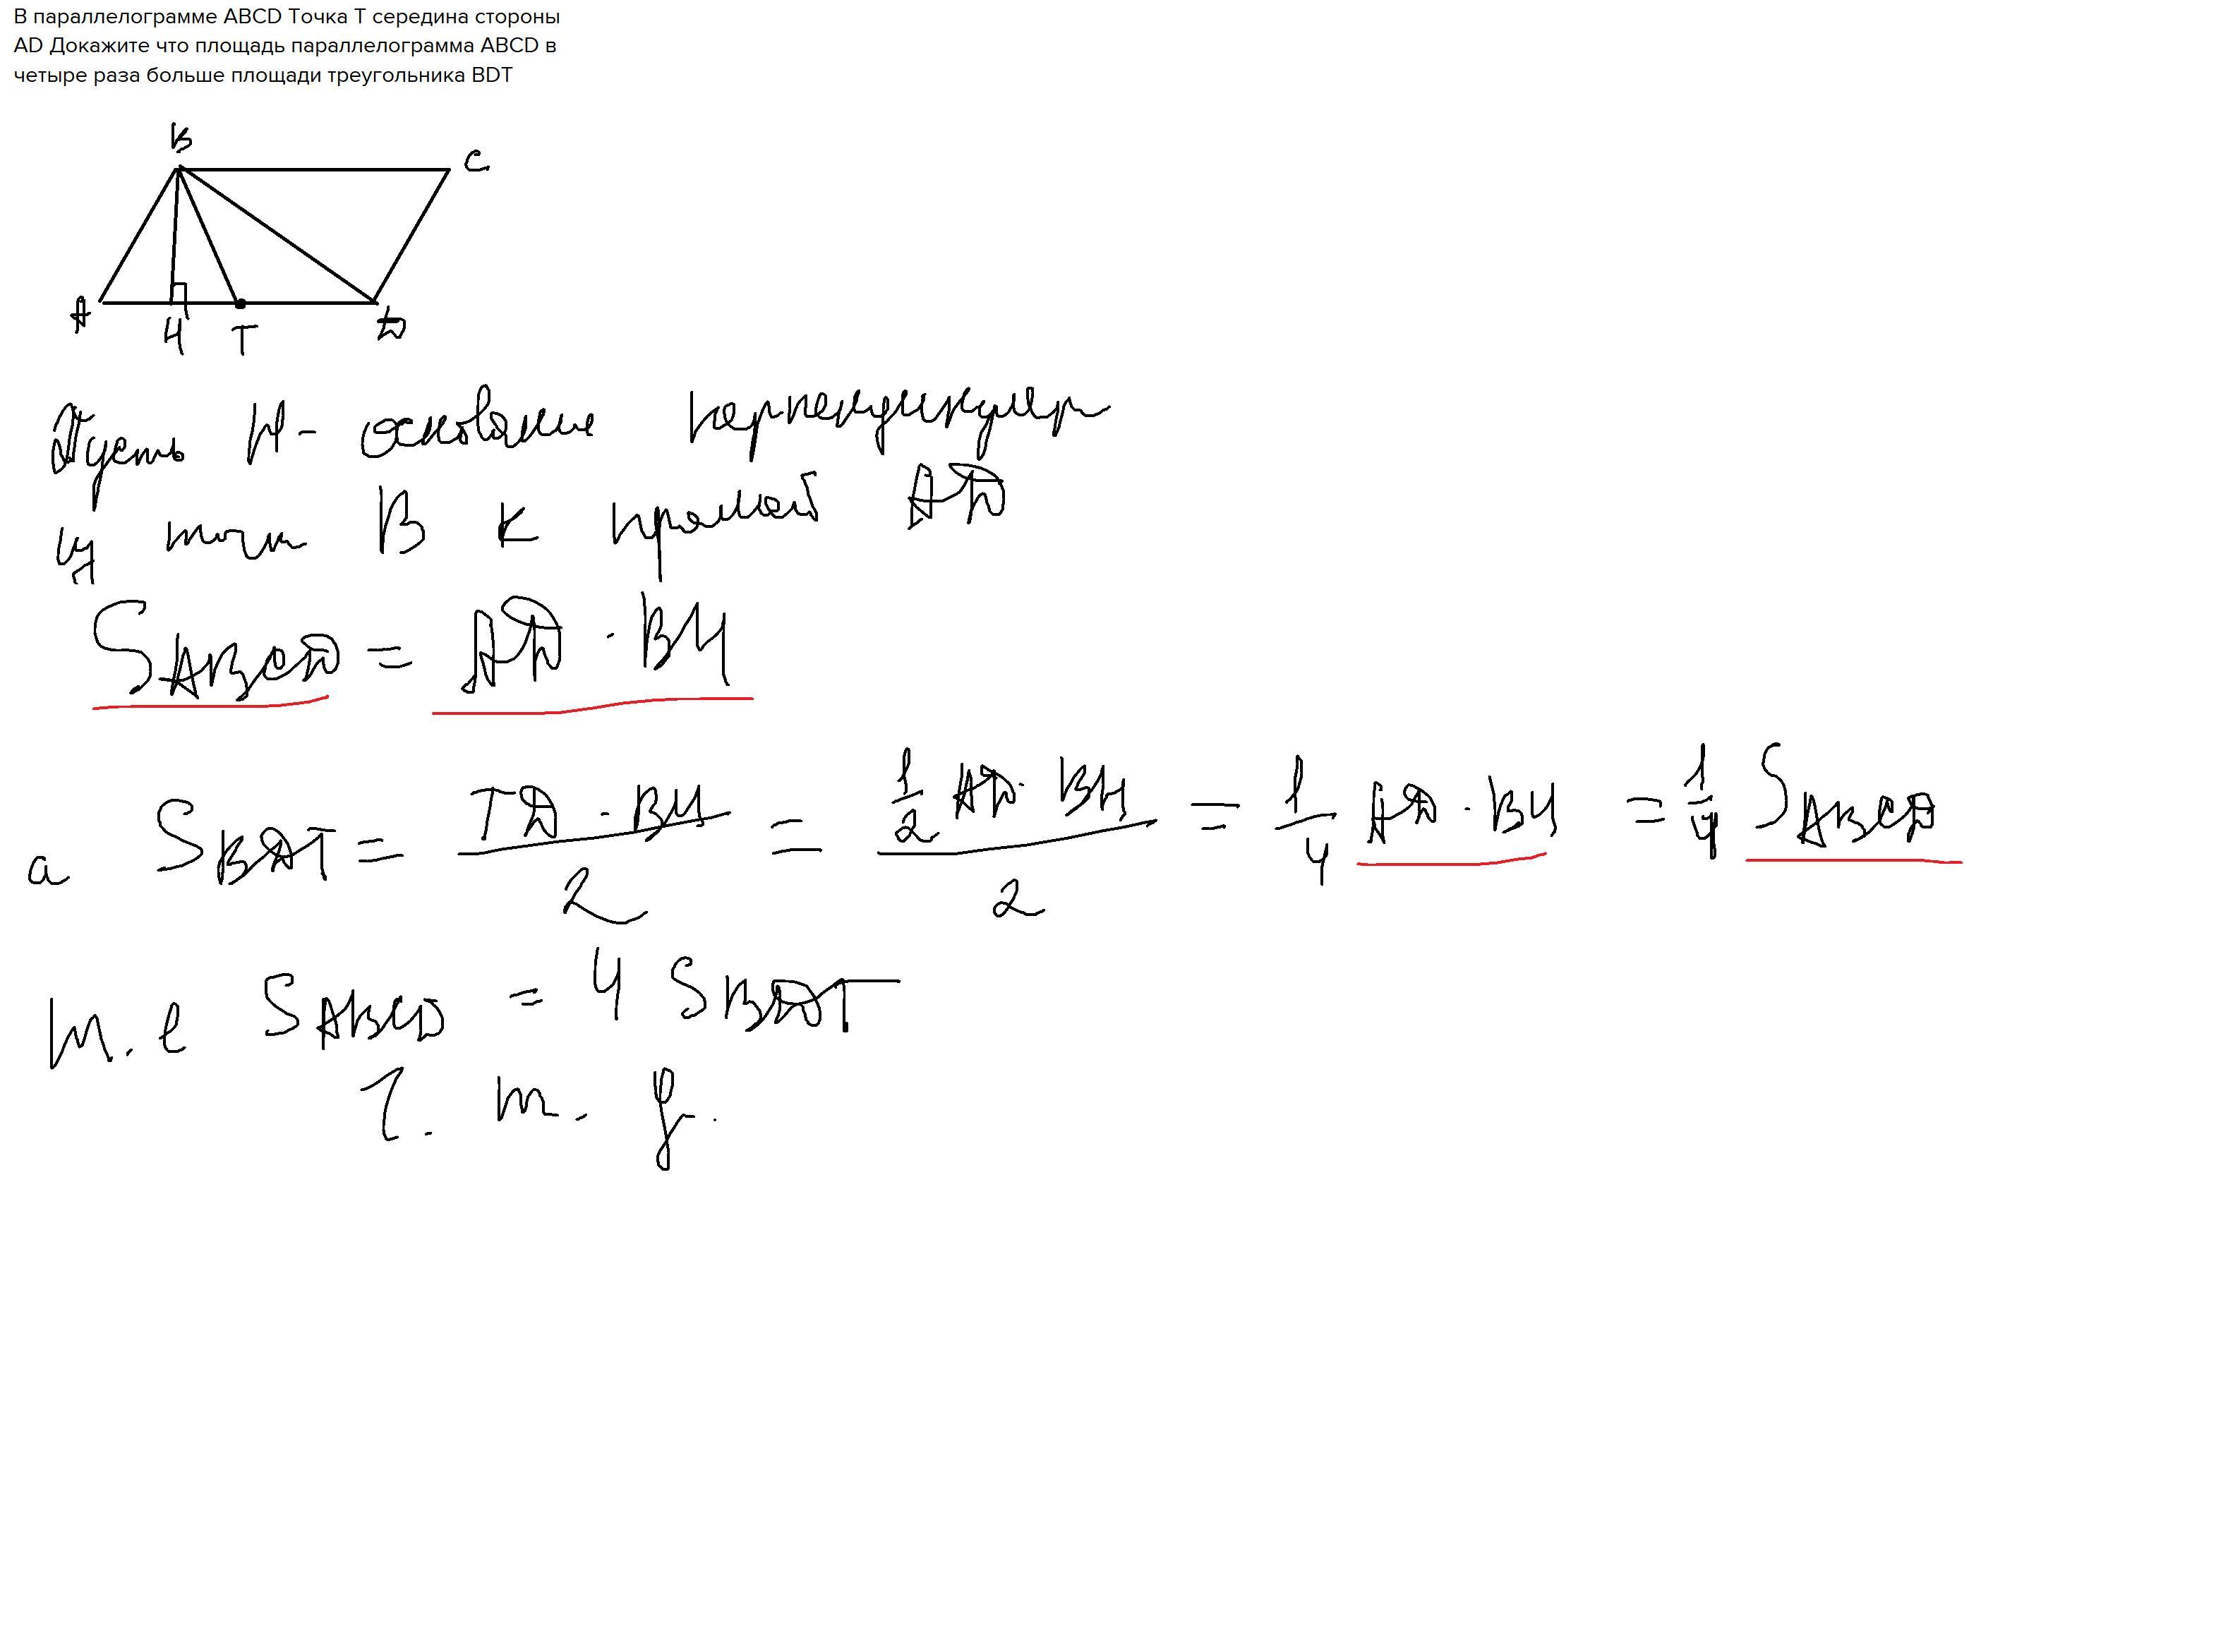 В параллелограмме ABCD Точка T середина стороны
AD Докажите что площадь параллелограмма ABCD в
четыре раза больше площади треугольника BDT
B
C
A
H
T
D
Пусть H - основание перпендикуляр
из точки B к прямой AD
S ABCD = AD · BH
а S BDT = TD · BH / 2 = 1/2 AD · BH / 2 = 1/4 AD · BH = 1/4 S ABCD
т. е S ABCD = 4 S BDT
ч. т. д.